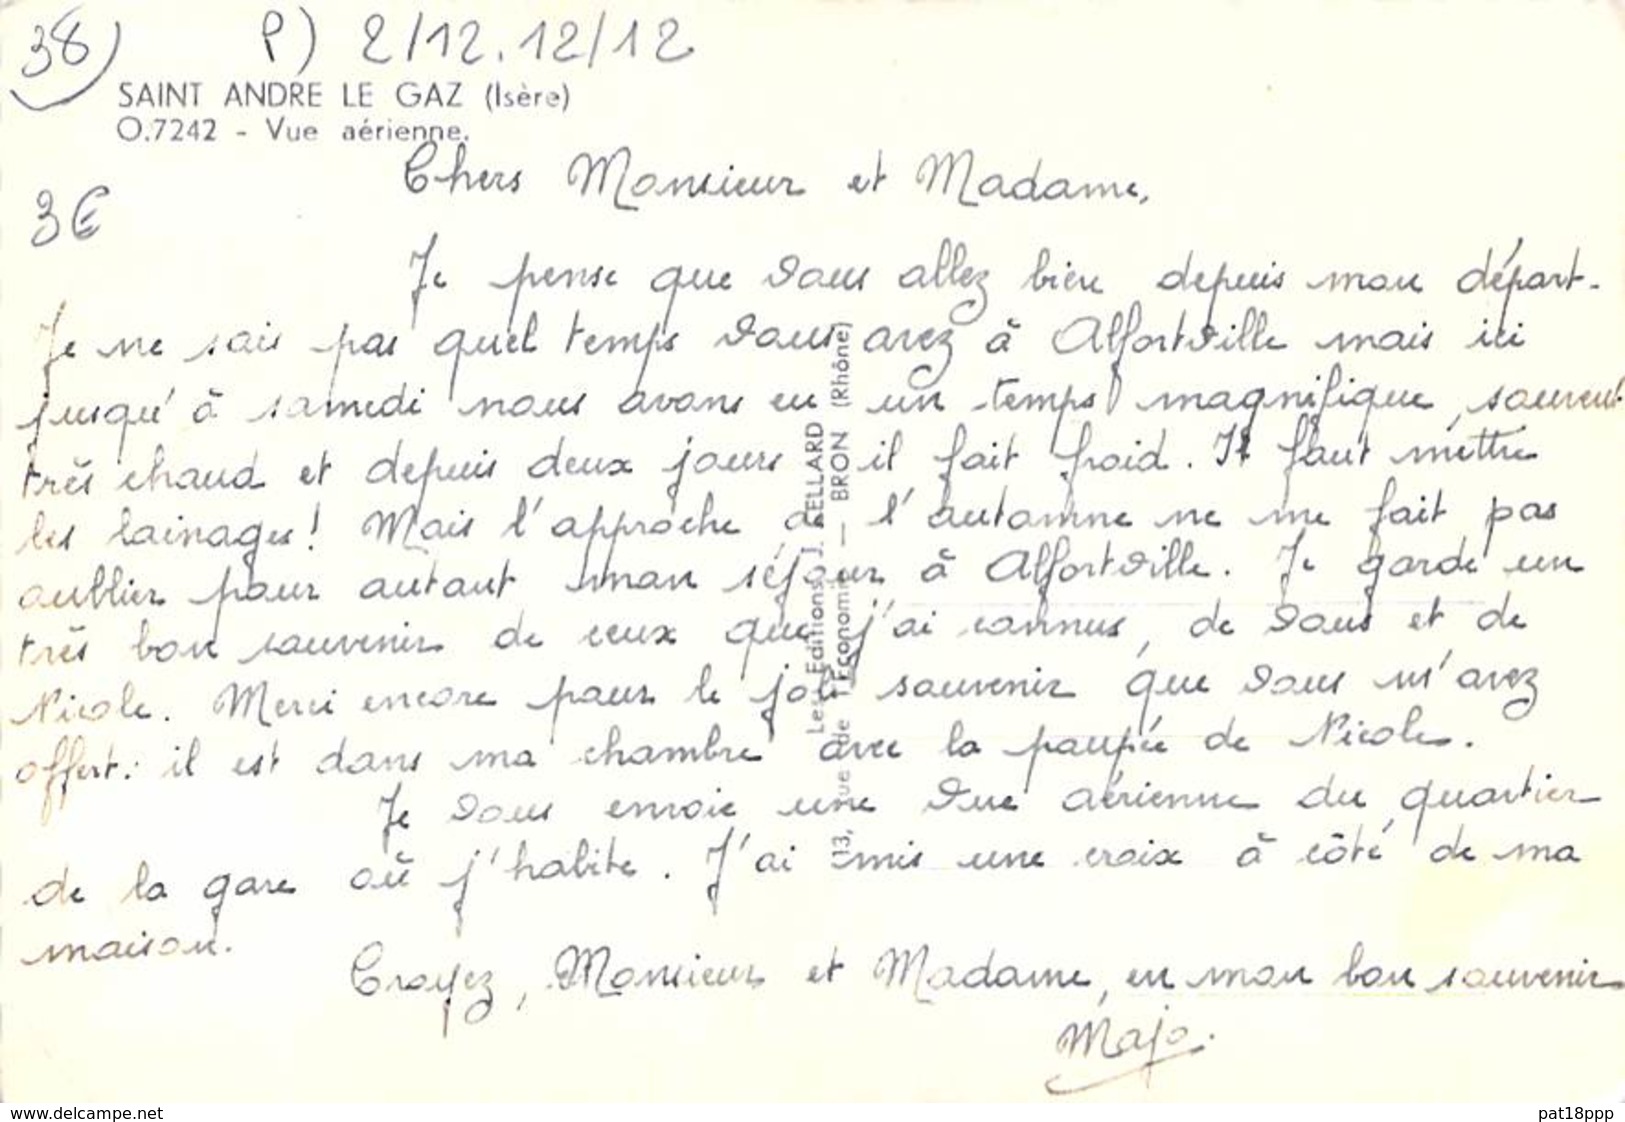 38) P) 2/12.12/12
SAINT ANDRE LE GAZ (Isère)
O.7242 - Vue aérienne.
3€
Chers Monsieur et Madame,
Je pense que vous allez bien depuis mon départ.
Je ne sais pas quel temps vous avez à Alfortville mais ici
jusqu'à samedi nous avons eu un temps magnifique, souvent
très chaud et depuis deux jours il fait froid. Il faut mettre
les lainages! Mais l'approche de l'automne ne me fait pas
oublier pour autant mon séjour à Alfortville. Je garde un
très bon souvenir de ceux que j'ai connus, de vous et de
Nicole. Merci encore pour le joli souvenir que vous m'avez
offert: il est dans ma chambre avec la poupée de Nicole.
Je vous envoie une vue aérienne du quartier
de la gare où j'habite. J'ai mis une croix à côté de ma
maison.
Croyez, Monsieur et Madame, en mon bon souvenir
Majo.
Les Editions J. CELLARD
13, rue de l'Economie — BRON (Rhône)
www.delcampe.net
pat18ppp